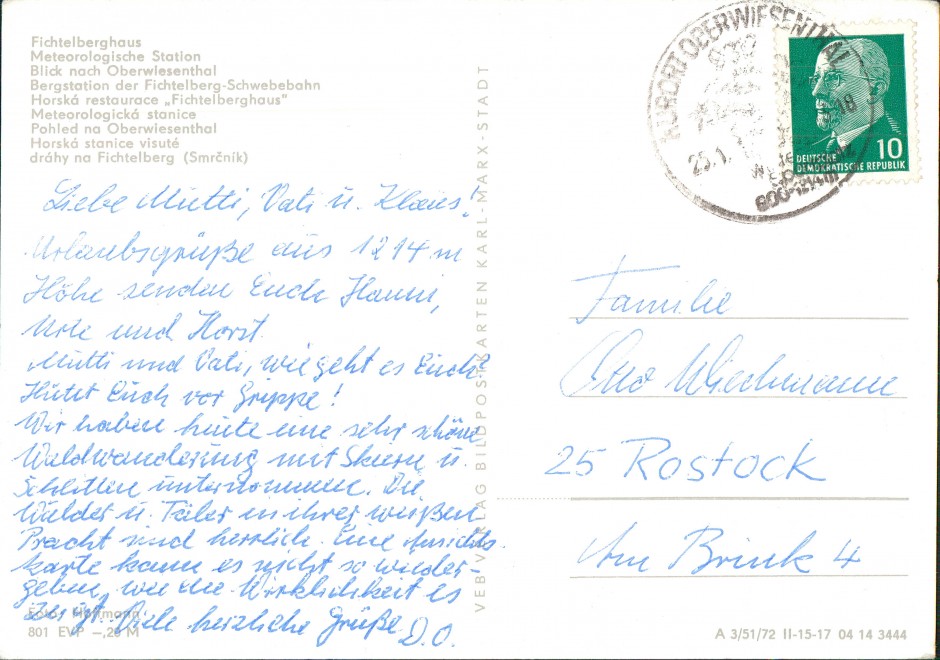 Fichtelberghaus
Meteorologische Station
Blick nach Oberwiesenthal
Bergstation der Fichtelberg-Schwebebahn
Horská restaurace „Fichtelberghaus"
Meteorologická stanice
Pohled na Oberwiesenthal
Horská stanice visuté
dráhy na Fichtelberg (Smrčník)
Liebe Mutti, Vati u. Klaus!
Urlaubsgrüße aus 1214 m
Höhe senden Euch Hanni,
und Horst.
Mutti und Vati, wie geht es Euch?
Hütet Euch vor Grippe!
Wir haben heute eine sehr schöne
Waldwanderung mit Skiern u.
Schlitten unternommen. Die
Wälder u. Täler in ihrer weißen
Pracht sind herrlich. Eine Ansichts-
karte kann es nicht so wieder-
geben, wie die Wirklichkeit es
zeigt. Viele herzliche Grüße D.O.
Foto: Hoffmann
801 EVP –,25 M
VEB VERLAG BILDPOSTKARTEN KARL-MARX-STADT
KURORT OBERWIESENTHAL
25.1.
18
10
DEUTSCHE
DEMOKRATISCHE REPUBLIK
Familie
Otto Wiechmann
25 Rostock
Am Brink 4
A 3/51/72 II-15-17 04 14 3444